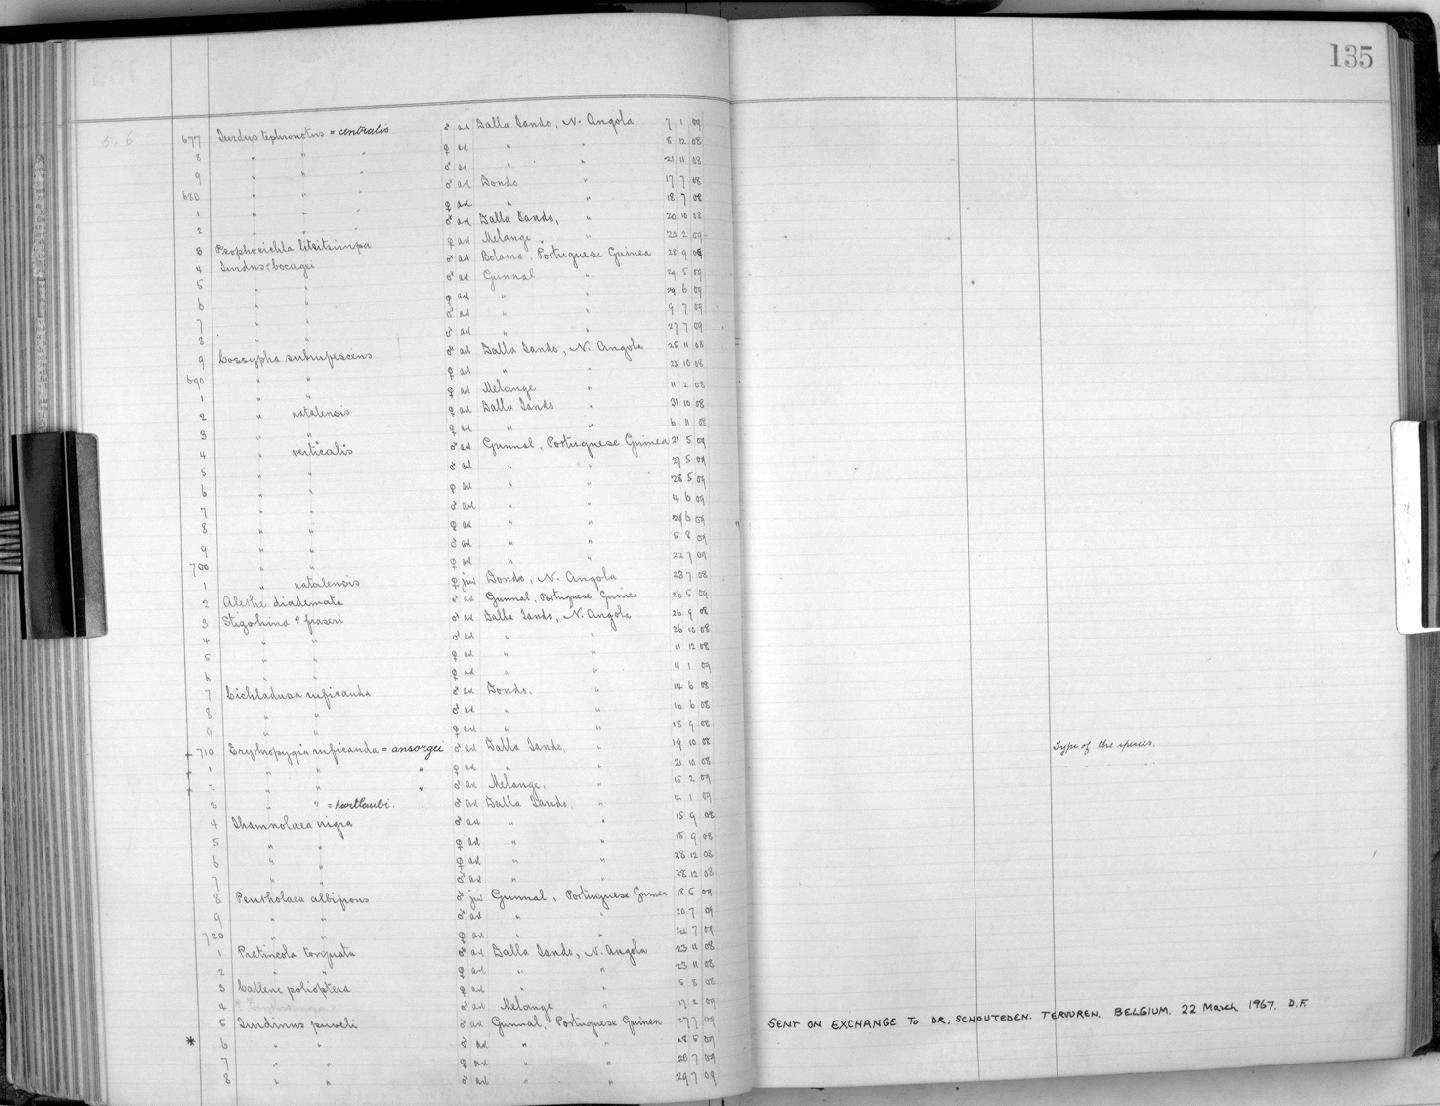 135
5. 6
677 Turdus tephronotus = centralis ♂ ad Dalla Tando, N. Angola 7 1 09
8 " " " ♀ ad " " 8 12 08
9 " " " ♂ ad " " 21 11 08
680 " " " ♂ ad Dondo " 17 7 08
1 " " " ♀ ad " " 18 7 08
2 " " " ♂ ad Dalla Tando, " 20 10 08
3 Psophocichla litsitsirupa ♀ ad Melange, " 2 09
4 Turdus bocagei ♂ ad Bolama, Portuguese Guinea 25 9 08
5 " " ♂ ad Gunnal " 29 5 09
6 " " ♀ ad " " 29 6 09
7 " " ♂ ad " " 9 7 09
8 " " ♂ ad " " 27 7 09
9 Cossypha subrufescens ♂ ad Dalla Tando, N. Angola 25 11 08
690 " " ♀ ad " " 23 10 08
1 " " ♀ ad Melange " 11 2 08
2 " natalensis ♀ ad Dalla Tando " 31 10 08
3 " " ♀ ad " " 6 11 08
4 " verticalis ♂ ad Gunnal, Portuguese Guinea 21 5 09
5 " " ♂ ad " " 27 5 09
6 " " ♀ ad " " 28 5 09
7 " " ♂ ad " " 4 6 09
8 " " ♀ ad " " 29 6 09
9 " " ♂ ad " " 5 8 09
700 " " ♀ ad " " 22 7 09
1 " natalensis ♀ juv Dondo, N. Angola 23 7 08
2 Alethe diademata ♂ ad Gunnal, Portuguese Guinea 26 5 09
3 Stizorhina fraseri ♂ ad Dalla Tando, N. Angola 26 9 08
4 " " ♂ ad " " 26 10 08
5 " " ♀ ad " " 11 12 08
6 " " ♀ ad " " 11 1 09
7 Cichladusa ruficauda ♂ ad Dondo, " 14 6 08
8 " " ♂ ad " " 10 6 08
9 " " ♀ ad " " 15 9 08
710 Erythropygia ruficauda = ansorgei ♂ ad Dalla Tando, " 19 10 08 Type of the species.
1 " " " ♀ ad " " 21 10 08
2 " " " ♂ ad Melange, " 15 2 09
3 " " = hartlaubi. ♂ ad Dalla Tando, " 14 1 09
4 Thamnolaea nigra ♂ ad " " 15 9 08
5 " " ♀ ad " " 15 9 08
6 " " ♀ ad " " 28 12 08
7 " " ♂ ad " " 28 12 08
8 Pentholaea albifrons ♂ juv Gunnal, Portuguese Guinea 18 5 09
9 " " ♂ ad " " 20 7 09
720 " " ♀ ad " " 24 7 09
1 Pratincola torquata ♂ ad Dalla Tando, N. Angola 23 11 08
2 " " ♀ ad " " 23 11 08
3 Callene polioptera ♀ ad " " 5 8 08
4 ♂ ad Melange " 17 2 09
5 Turdinus puveli ♂ ad Gunnal, Portuguese Guinea 27 7 09
* 6 " " ♂ ad " " 28 5 09 SENT ON EXCHANGE TO DR. SCHOUTEDEN. TERVUREN. BELGIUM. 22 March 1967. D.F.
7 " " ♀ ad " " 28 7 09
8 " " ♂ ad " " 29 7 09